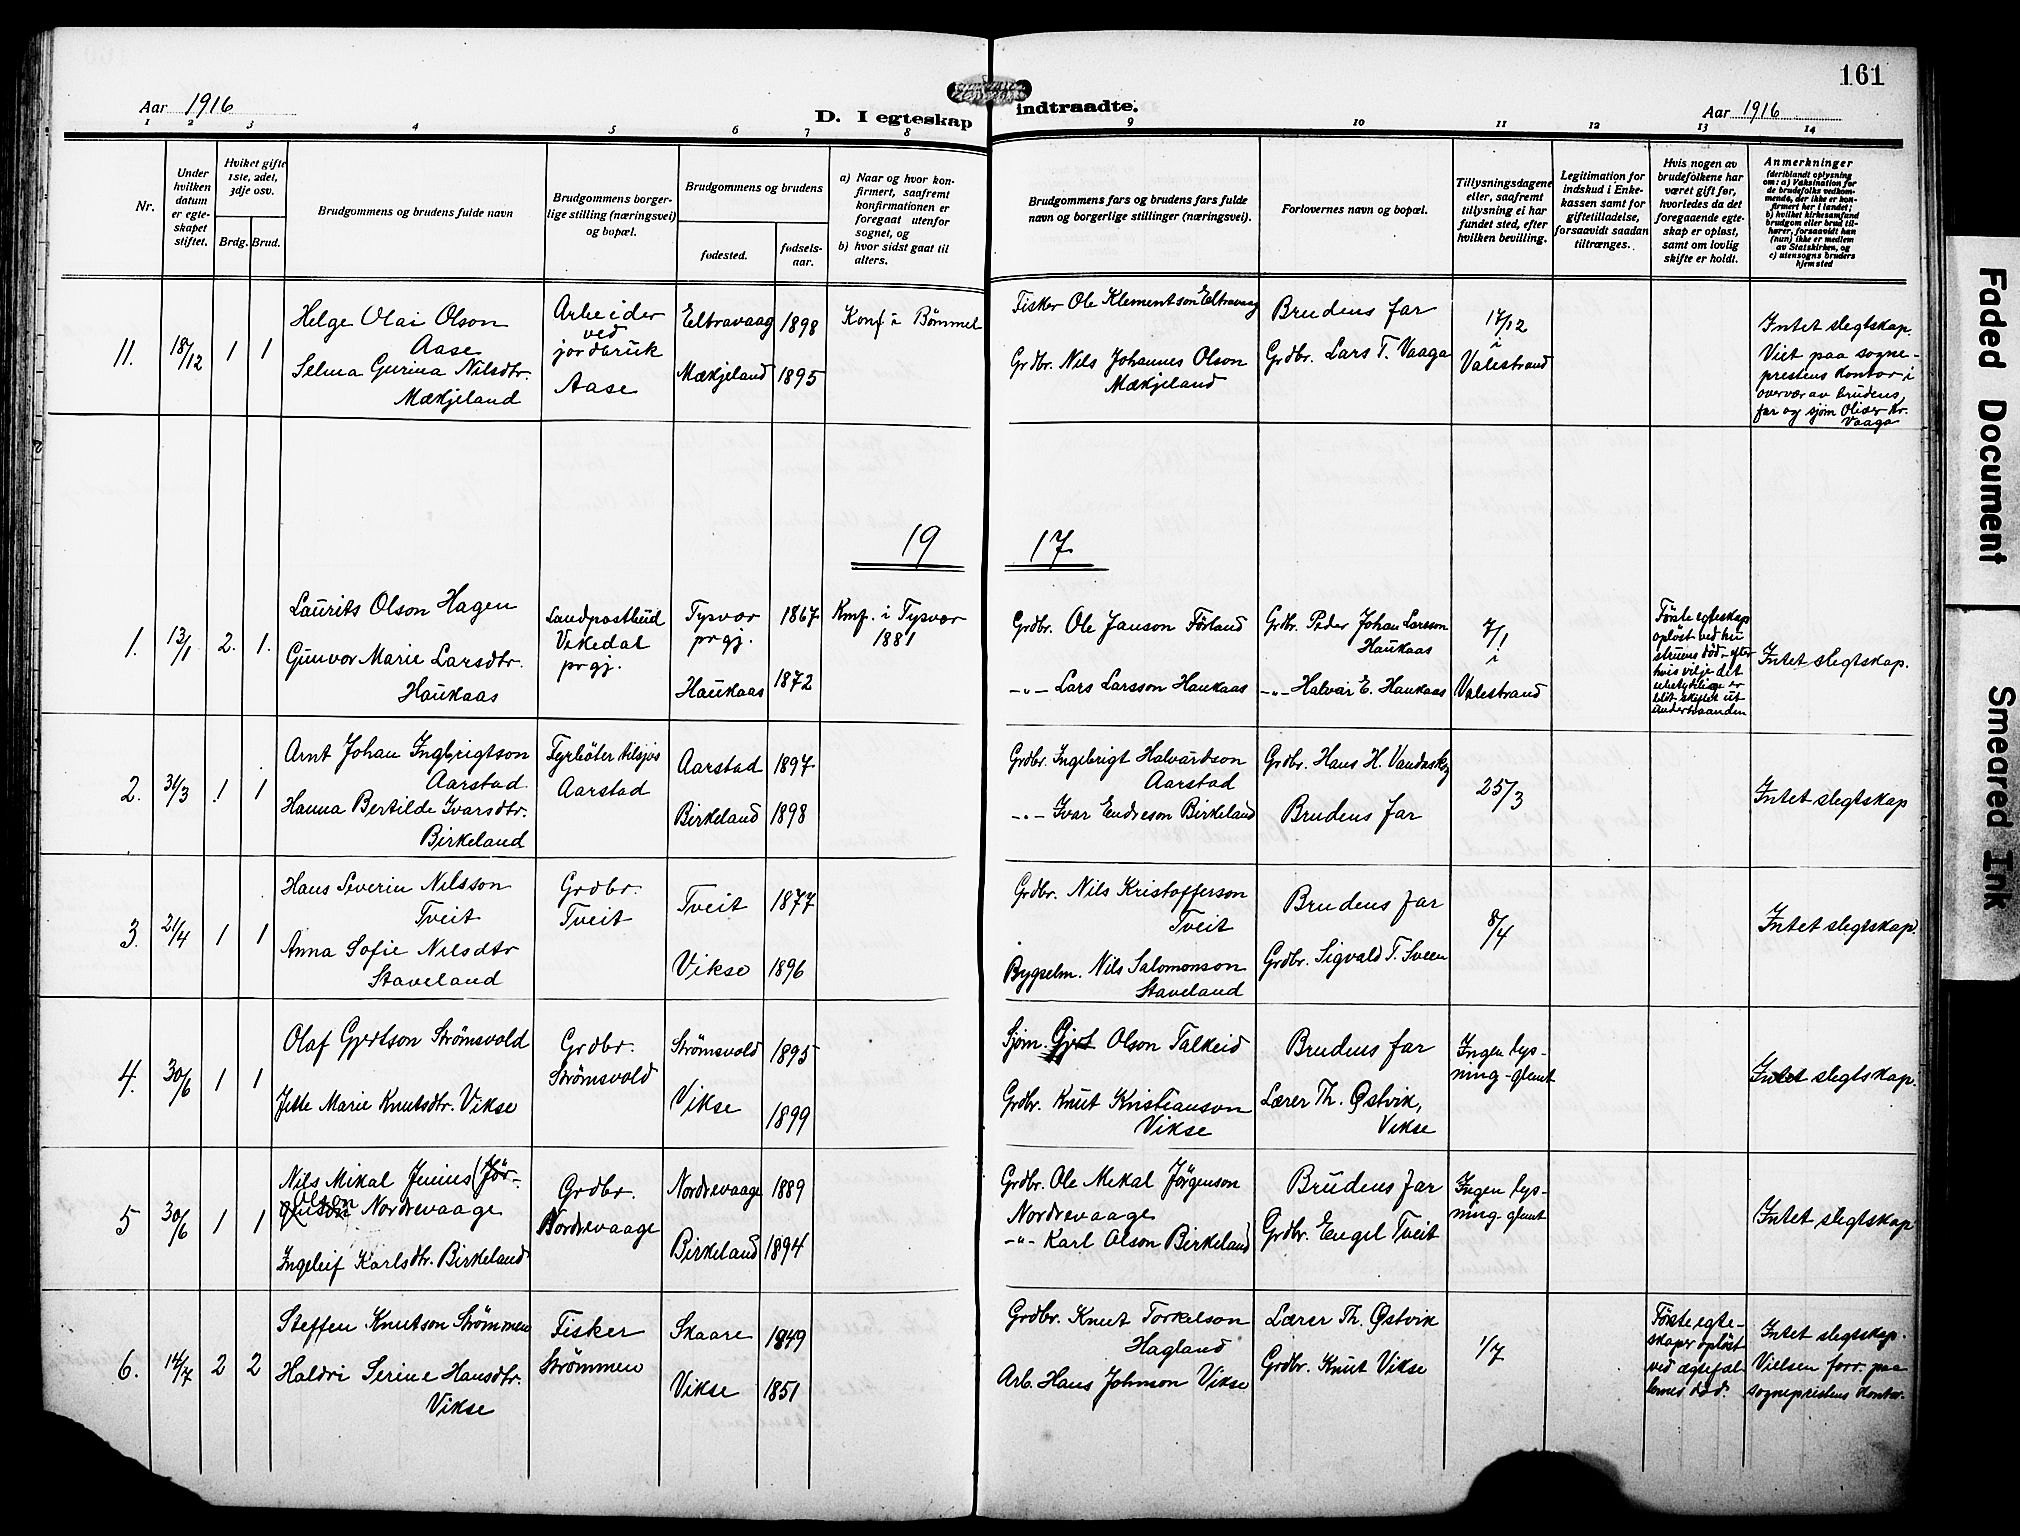 161
Aar 1916
D. I egteskap indtraadte.
Aar 1916
1 2 3 4 5 6 7 8 9 10 11 12 13 14
Nr.
Under hvilken datum er egteskapet stiftet.
Hvilket gifte 1ste, 2det, 3dje osv.
Brdg. Brud.
Brudgommens og brudens fulde navn
Brudgommens borgerlige stilling (næringsvei) og bopæl.
Brudgommens og brudens
fødested.
fødselsaar.
a) Naar og hvor konfirmert, saafremt konfirmationen er foregaat utenfor sognet, og
b) hvor sidst gaat til alters.
Brudgommens fars og brudens fars fulde navn og borgerlige stillinger (næringsvei).
Forlovernes navn og bopæl.
Tillysningsdagene eller, saafremt tillysning ei har fundet sted, efter hvilken bevilling.
Legitimation for indskud i Enkekassen samt for giftetilladelse, forsaavidt saadan tiltrænges.
Hvis nogen av brudefolkene har været gift før, hvorledes da det foregaaende egteskap er opløst, samt om lovlig skifte er holdt.
Anmerkninger (deriblandt oplysning om: a) Vaksination for de brudefolks vedkommende, der ikke er konfirmert her i landet; b) hvilket kirkesamfund brudgom eller brud tilhører, forsaavidt han (hun) ikke er medlem av Statskirken, og c) utensogns bruders hjemsted
11. 18/12 1 1
Helge Olai Olson
Aase
Selma Gurina Nilsdtr.
Mækjeland
Arbeider
ved
jordbruk
Aase
Eltravaag 1898
Mækjeland 1895
Konf i Bømmel
Fisker Ole Klementson Eltravaag
Grdbr. Nils Johannes Olson
Mækjeland
Brudens far
Grdbr. Lars T. Vaaga
17/12
i
Valestrand
Intet slegtskap.
Viet paa sogne-
prestens kontor i
overvær av brudens
far og sjøm Oliver Kr.
Vaaga
19
17
1. 13/1 2. 1.
Laurits Olson Hagen
Gunvor Marie Larsdtr.
Haukaas
Landpostbud
Vikedal
prgj.
Tysvær
prgj.
1867
Haukaas 1872
Knf. i Tysvær
1881
Grdbr. Ole Janson Førland
-"- Lars Larsson Haukaas
Grdbr. Peder Johan Larsson
Haukaas
-"- Halvar E. Haukaas
7/1
i
Valestrand
Første egteskap
opløst ved hu
struens død - efter
hvis vilje det
ubetydelige er
blit skiftet ut
Intet slegtskap.
2. 31/3 1 1
Arnt Johan Ingbrigtson
Aarstad
Hanna Bertilde Ivarsdtr.
Birkeland
Fyrbøter tilsjøs
Aarstad
Aarstad 1897
Birkeland 1898
Grdbr. Ingebrigt Halvardson
Aarstad
-"- Ivar Endreson Birkeland
Grdbr. Hans H. Vandaskog
Brudens far
25/3
Intet slegtskap
3. 21/4 1 1
Hans Severin Nilsson
Tveit
Anna Sofie Nilsdtr
Staveland
Grdbr.
Tveit
Tveit 1877
Vikse 1896
Grdbr. Nils Kristofferson
Tveit
Bygselm. Nils Salomonson
Staveland
Brudens far
Grdbr. Sigvald T. Sveen
8/4
Intet slegtskap.
4. 30/6 1 1
Olaf Gjertson Strømsvold
Jette Marie Knutsdtr. Vikse
Grdbr.
Strømsvold
Strømsvold 1895
Vikse 1899
Sjøm. Gjert Olson Talkeid
Grdbr. Knut Kristianson
Vikse
Brudens far
Lærer Th. Østvik,
Vikse
Ingen lys-
ning - glemt
Intet slegtskap.
5 30/6 1 1
Nils Mikal Junius (Jør-
genson Olson Nordrevaage
Ingeleif Karlsdtr. Birkeland
Grdbr.
Nordrevaage
Nordrevaage 1889
Birkeland 1894
Grdbr. Ole Mekal Jørgenson
Nordrevaage
-"- Karl Olson Birkeland
Brudens far
Grdbr. Engel Tveit
Ingen lys-
ning - glemt
Intet slegtskap
6. 14/7 2 2
Steffen Knutson Strømmen
Haldri Serine Hansdtr.
Vikse
Fisker
Strømmen
Skaare 1849
Vikse 1851
Grdbr. Knut Torkelson
Hagland
Arb. Hans Johnson Vikse
Lærer Th. Østvik
Grdbr. Knut Vikse
1/7
Første egte-
skaper opløst
ved ægtefæl-
lernes død.
Intet slegtskap.
Vielsen forr. paa
sogneprestens kontor.
Faded Document
Smeared Ink